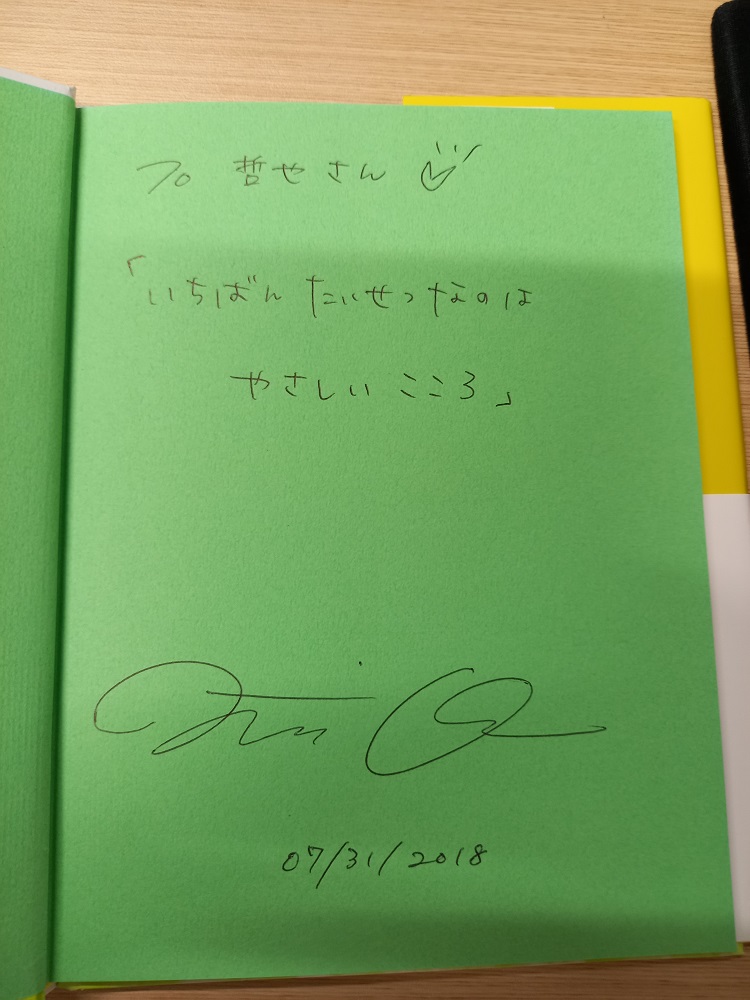 To 哲也さん
「いちばん たいせつ なのは
やさしい こころ」
07/31/2018